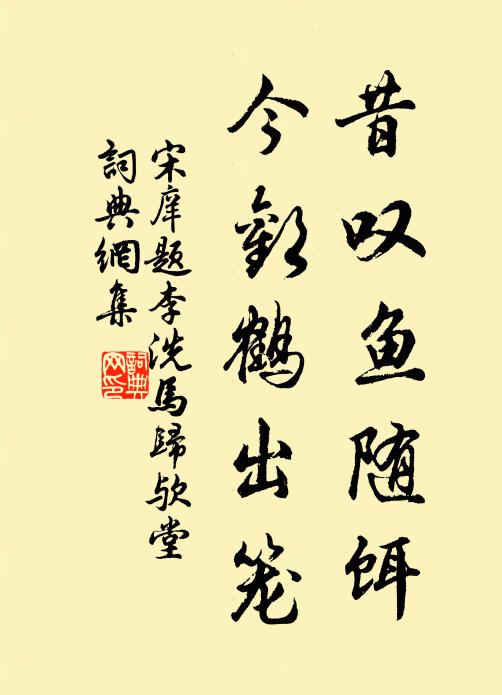 昔叹鱼随饵
今歡鹤出笼
宋庠题李洗馬歸欤堂
詞典網集
詞典
网印